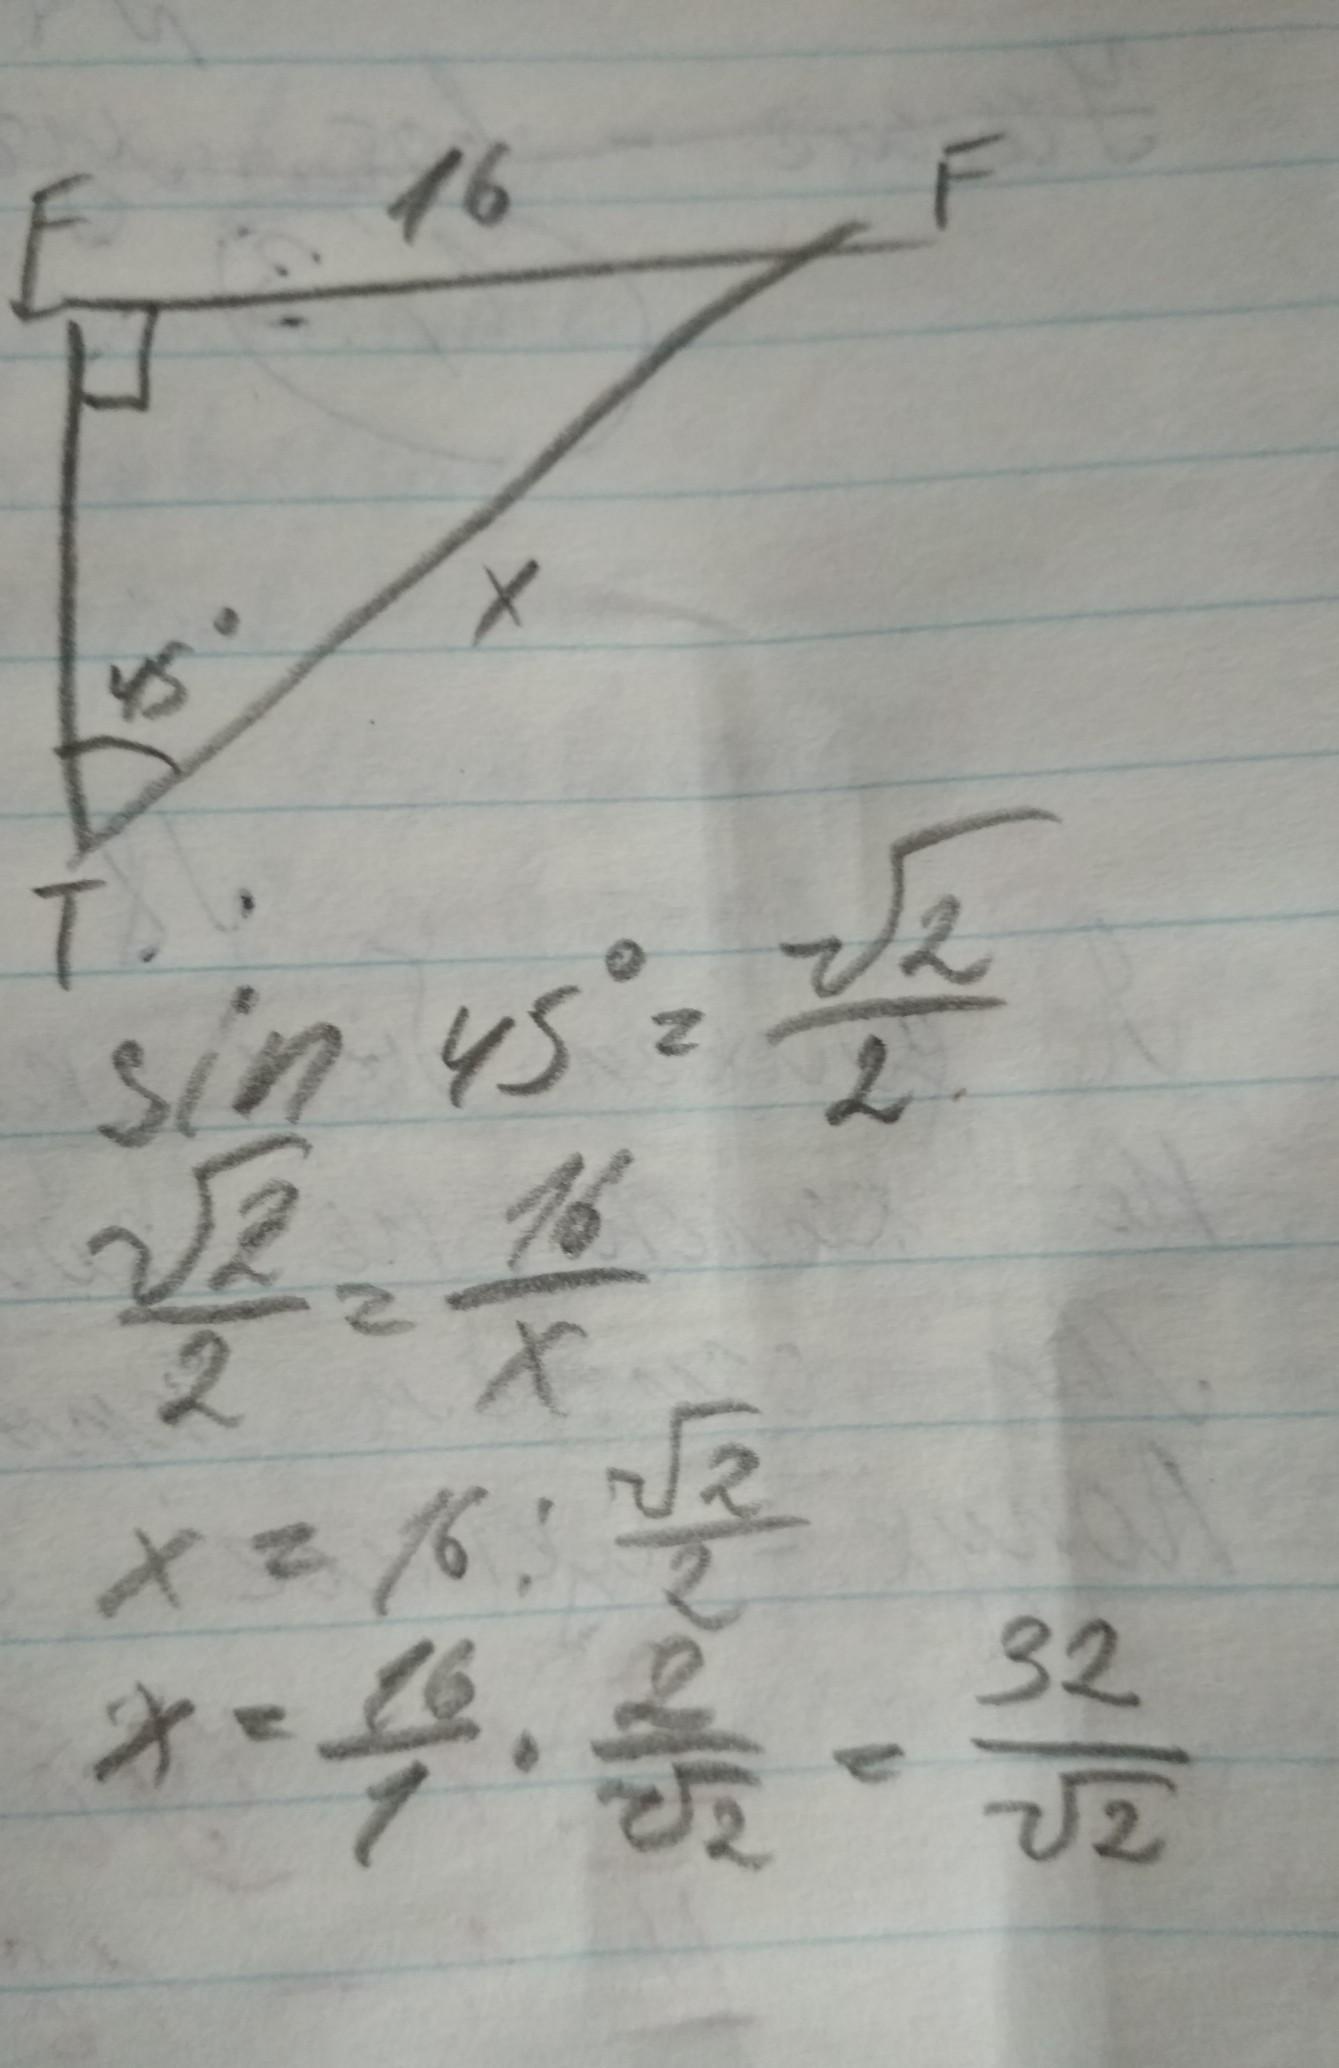 E 16 F
x
45°
T
sin 45° = √2/2
√2/2 = 16/x
x = 16 : √2/2
x = 16/1 · 2/√2 = 32/√2